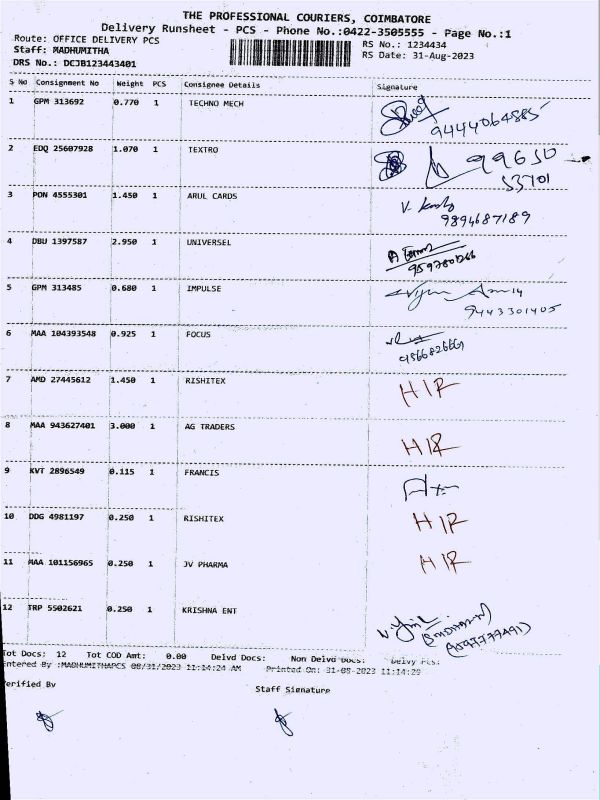 THE PROFESSIONAL COURIERS, COIMBATORE
Delivery Runsheet - PCS - Phone No.:0422-3505555 - Page No.:1
Route: OFFICE DELIVERY PCS
RS No.: 1234434
Staff: MADHUMITHA
RS Date: 31-Aug-2023
DRS No.: DCJB123443401
S No Consignment No Weight PCS Consignee Details Signature
1 GPM 313692 0.770 1 TECHNO MECH
9444064885
2 EDQ 25607928 1.070 1 TEXTRO 99650
53701
3 PON 4555301 1.450 1 ARUL CARDS
9894687189
4 DBU 1397587 2.950 1 UNIVERSEL
5 GPM 313485 0.680 1 IMPULSE
9443301405
6 MAA 104393548 0.925 1 FOCUS
7 AMD 27445612 1.450 1 RISHITEX HIR
8 MAA 943627401 3.000 1 AG TRADERS HIR
9 KVT 2896549 0.115 1 FRANCIS
10 DDG 4981197 0.250 1 RISHITEX HIR
11 MAA 101156965 0.250 1 JV PHARMA HIR
12 TRP 5502621 0.250 1 KRISHNA ENT
Tot Docs: 12 Tot COD Amt: 0.00 Delvd Docs: Non Delvd Docs: Delvy Pcs:
Entered By :MADHUMITHAPCS 08/31/2023 11:14:24 AM Printed On: 31-08-2023 11:14:29
Verified By
Staff Signature